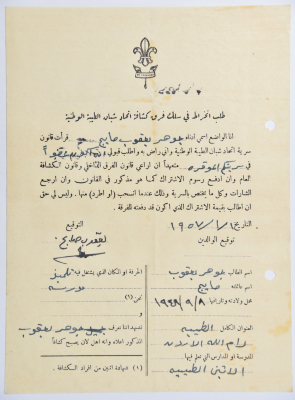 طلب انخراط في سلك فرق كشافة اتحاد شبان الطيبة الوطنية
انا الواضع اسمي ادناه جوهر يعقوب قرأت قانون
سرية اتحاد شبان الطيبة الوطنية واني راض به واطلب قبولي
في سريتكم الموقرة متعهداً ان اراعي قانون الفرق الداخلي وقانون الكشافة
العام وان ادفع رسوم الاشتراك كما هو مذكور في القانون وان ارجع
الشارات وكل ما يختص بالسرية وذلك عندما انسحب (او اطرد) منها. وليس لي حق
ان اطالب بقيمة الاشتراك الذي اكون قد دفعته للفرقة.
التاريخ ١٩٥٧
التوقيع
توقيع الوالدين
اسم الطالب جوهر يعقوب
اسم عائلته
محل ولادته وتاريخها ١٩٤٢/٩/٨
العنوان الكامل الطيبه
رام الله الاردن
المدرسة او المدارس التي تعلم فيها
اللاتين الطيبه
الحرفة او المكان الذي يشتغل فيه تلميذ
مدرسة
نحن (١)
نشهد اننا نعرف جوهر يعقوب
المذكور اعلاه وانه اهل لان يصبح كشافاً
(١) شهادة اثنين من افراد الكشافة.